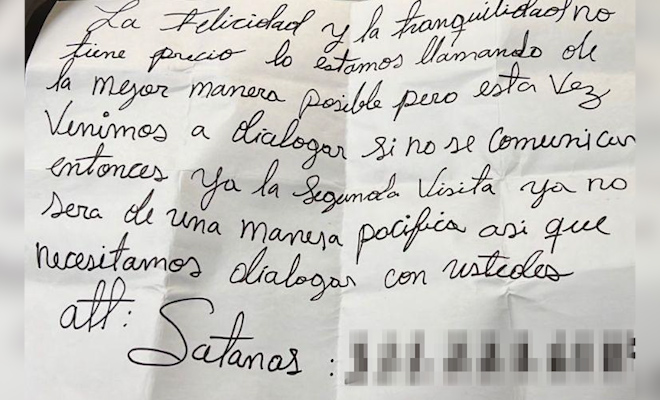 La Felicidad y la tranquilidad no
tiene precio lo estamos llamando de
la mejor manera posible pero esta vez
Venimos a dialogar si no se comunican
entonces ya la segunda visita ya no
sera de una manera pacifica asi que
necesitamos dialogar con ustedes
att:
Satanas :